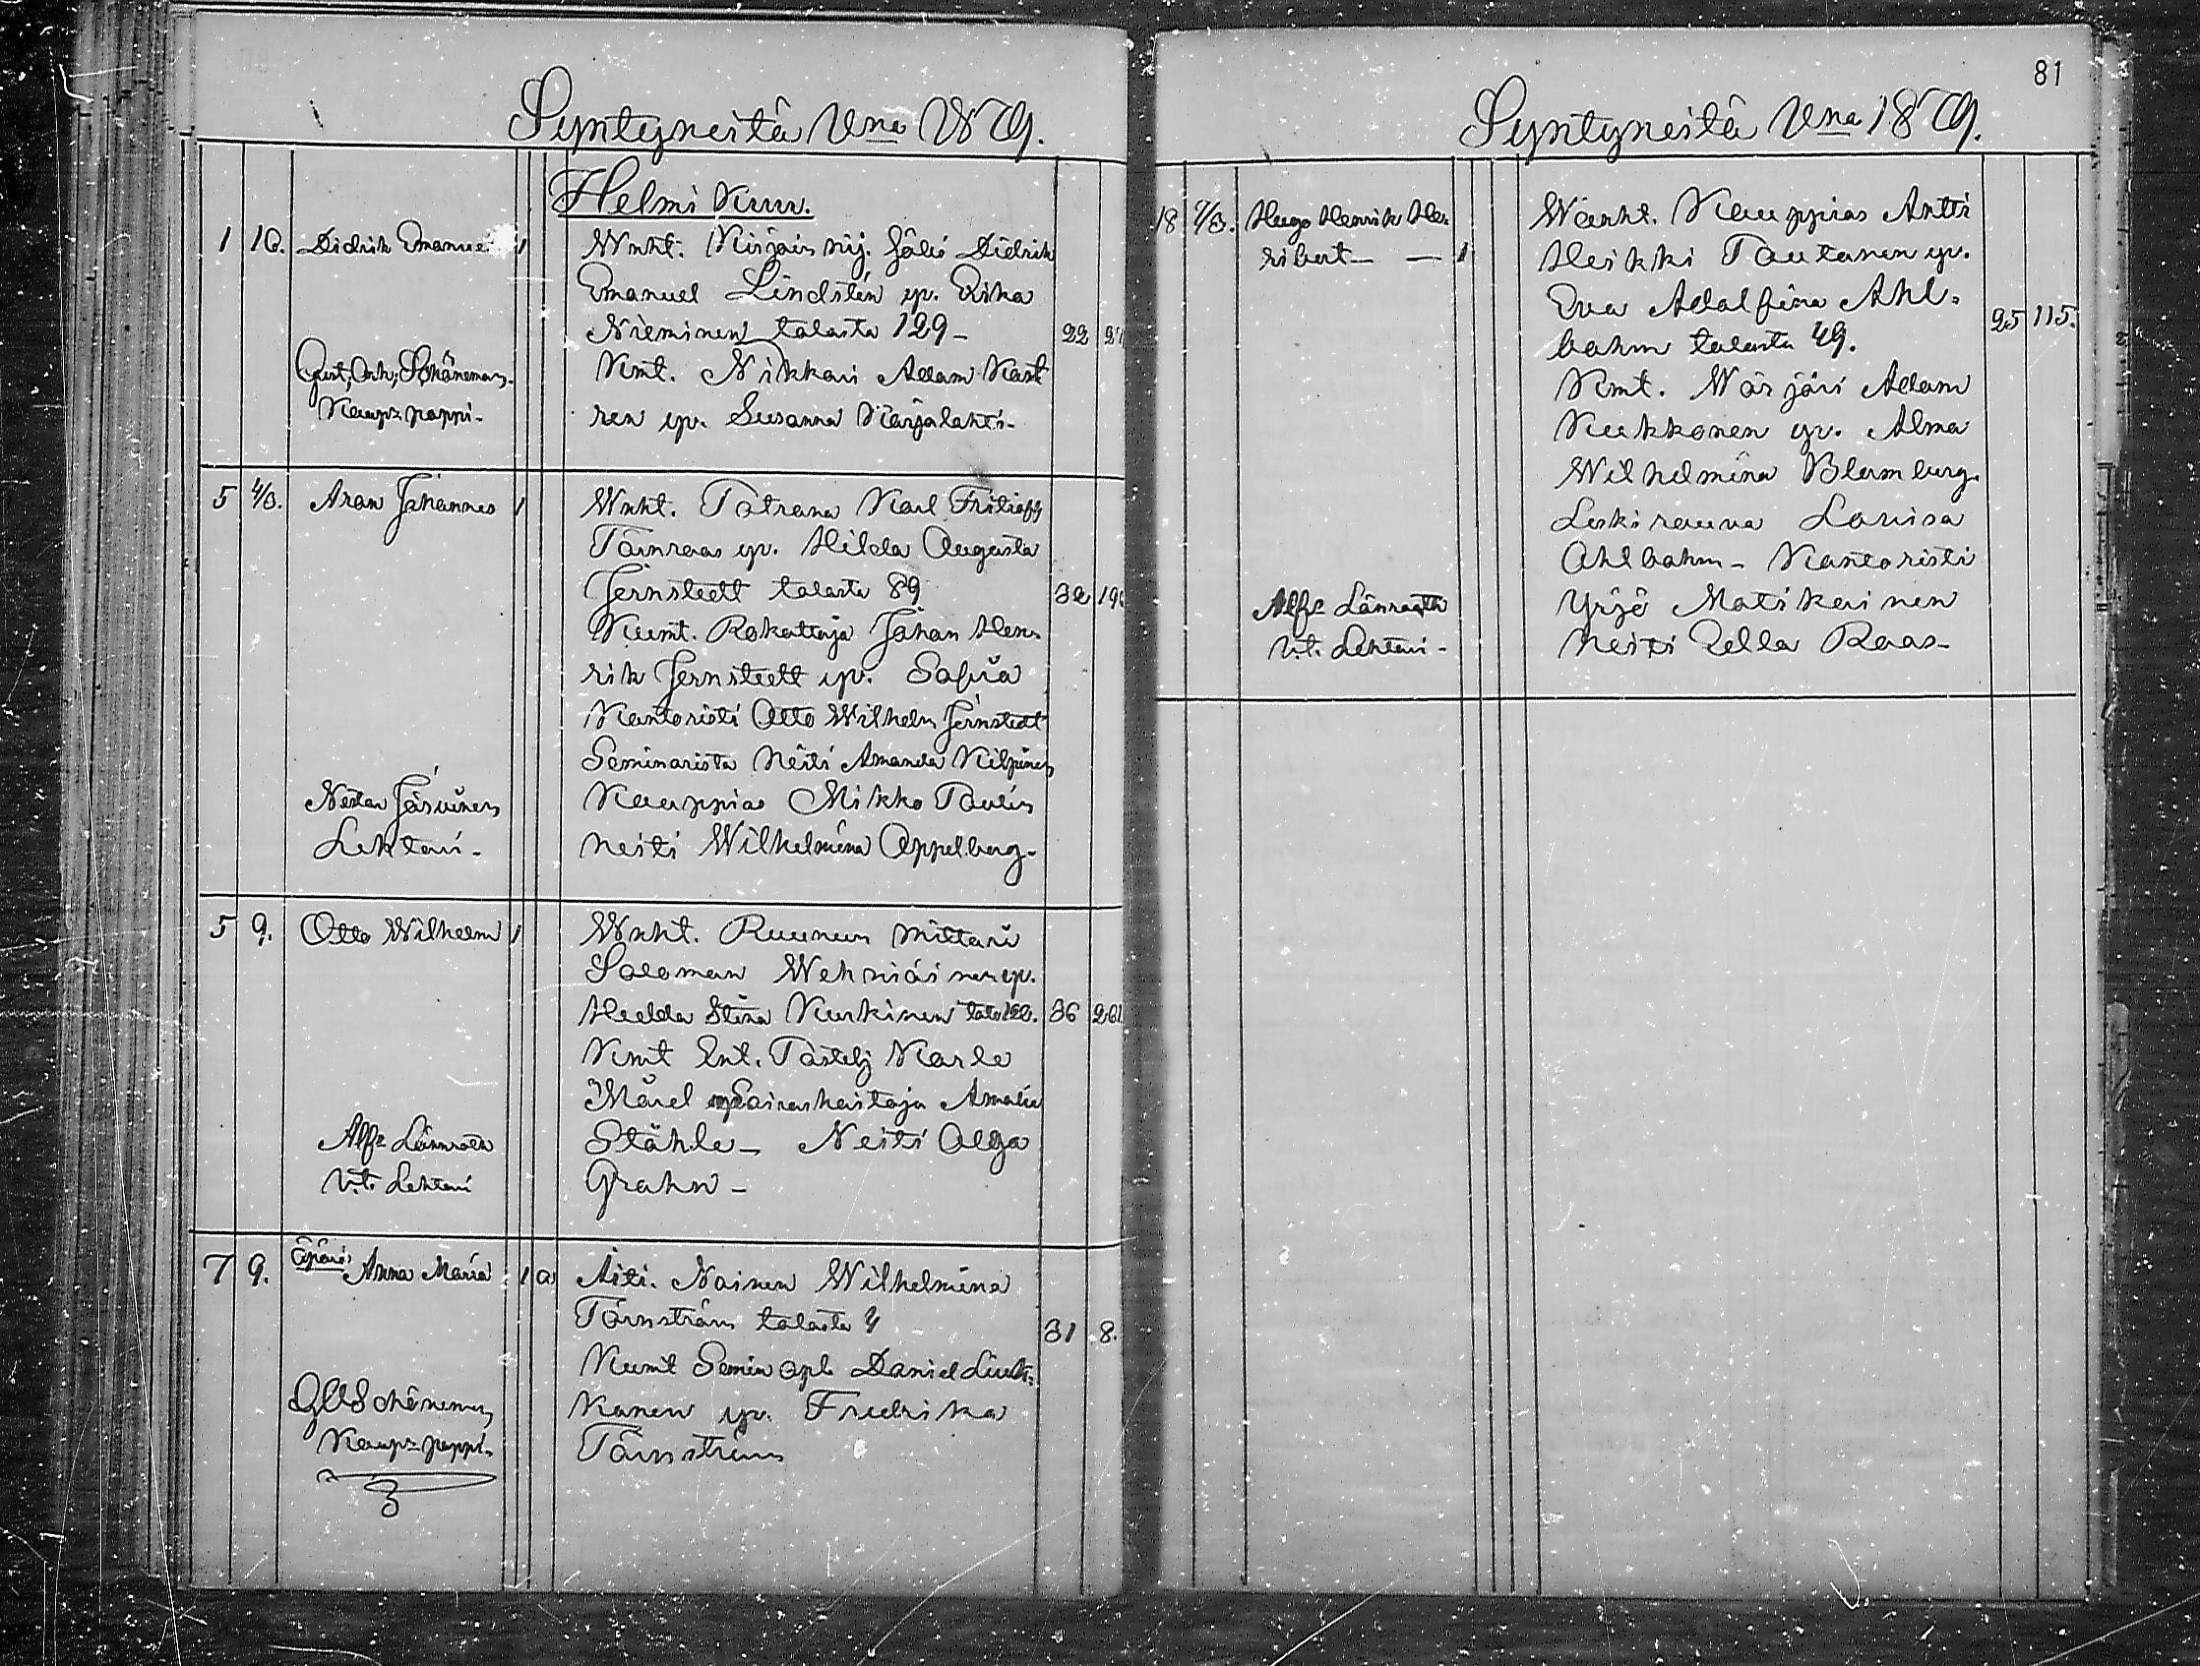 Syntyneitä Vna 1879.
Helmi Kuu.
1 10. Didrik Emanuel 1
Wnht. Kirjain nij. Juliö Didrik
Emanuel Lindstén ip. Erika
Nieminen talosta 129 -
22
Kmt. Nikkari Adam Kast
ren ip. Susanna Karjalahti -
Gust. Ad. Schöneman.
Kaup: pappi -
5 4/3. Aron Johannes 1
Wnht. Karl Fritioff
Törnroos ip. Hilda Augusta
Jernstedt talosta 89
32
Kumt. Rokottaja Johan Hen-
rik Jernstedt ip. Sofia
Kantoristi Otto Wilhelm Jernstedt
Seminarista Neiti Amanda Kilpinen
Kauppias Mikko Paulin
Neiti Wilhelmina Appelberg -
Nestor Järvinen
Lehtori -
5 9. Otto Wilhelm 1
Wnht. Ruunun mittari
Soloman Wehniäinen ip.
Hedda Stina Kurkinen
36
Kmt Ent. Karle
Mårel ip Sairashoitaja Amalia
Ståhle - Neiti Olga
Grahn -
Alf: Lönnroth
V.t. Lehtori
7 9. Äpärä Anna Maria 1 a
Äiti. Nainen Wilhelmina
Törnström talosta 4
31 8.
Kumt Semin opl Daniel Liuk-
konen ip. Fredrika
Törnström
G A Schöneman
Kaup: pappi -
81
Syntyneitä Vna 1879.
18 9/3. Hugo Henrik He-
ribert - - 1
Wanht. Kauppias Antti
Heikki Pautanen ip.
Eva Adolfina Ahl-
bohm talosta 49.
25 115.
Kmt. Wärjäri Adam
Kukkonen ip. Alma
Wilhelmina Blomberg -
Leskirouva Lovisa
Ahlbohm - Kantoristi
Yrjö Matikainen
Neiti Zella Roos -
Alf: Lönnroth
V.t. Lehtori -